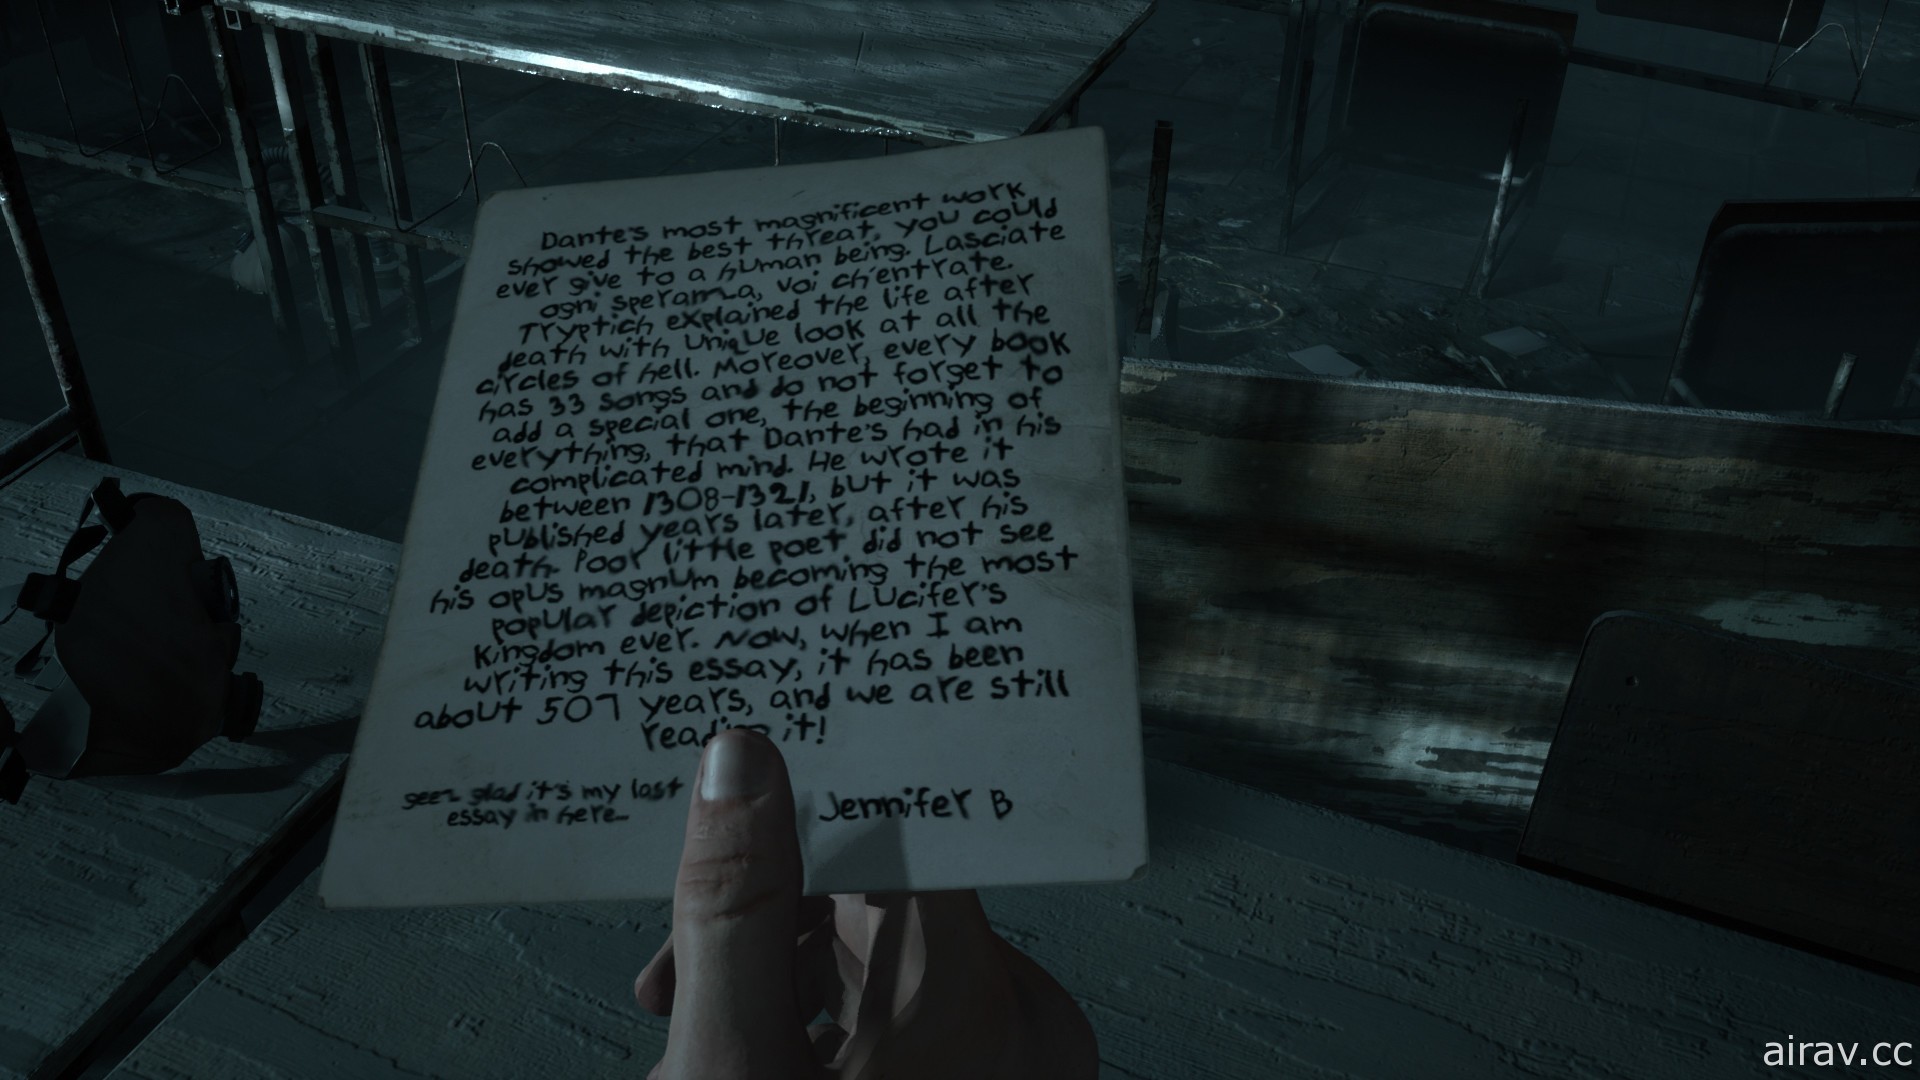 Dante's most magnificent work
showed the best threat, you could
ever give to a human being. Lasciate
ogni speranza, voi ch'entrate.
Tryptich explained the life after
death with unique look at all the
circles of hell. Moreover, every book
has 33 songs and do not forget to
add a special one, the beginning of
everything, that Dante's had in his
complicated mind. He wrote it
between 1308-1321, but it was
published years later, after his
death. Poor little poet did not see
his opus magnum becoming the most
popular depiction of Lucifer's
kingdom ever. Now, when I am
writing this essay, it has been
about 507 years, and we are still
reading it!
glad it's my last
essay in here...
Jennifer B
airav.cc